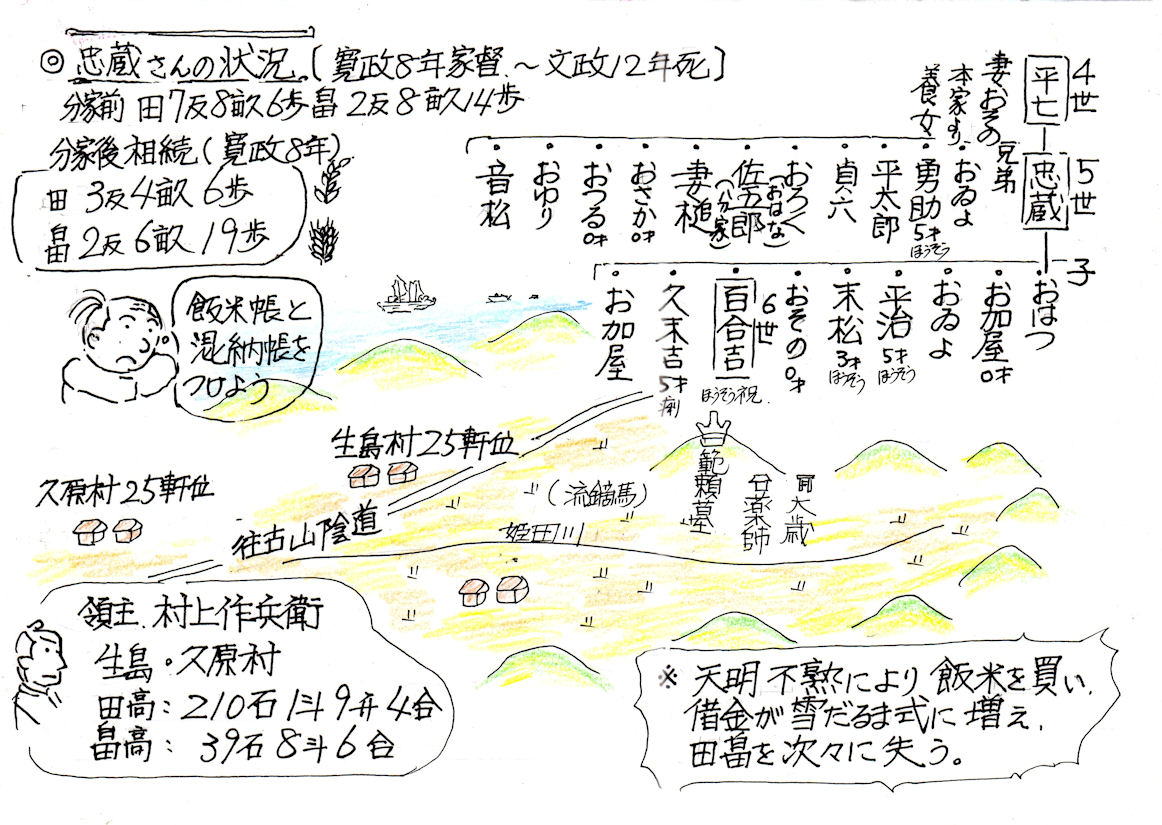 ◎忠蔵さんの状況〔寛政8年家督～文政12年死〕
分家前 田7反8畝6歩畠2反8畝14歩
分家後相続(寛政8年)
田 3反4畝6歩
畠 2反6畝19歩
4世
平七
妻おその
本家より
養女
5世
忠蔵
兄弟
おゐよ
勇助 5才
ほうそう
平太郎
貞六
おろく
(おはな)
佐五郎
(分家)
妻槌
おさか 0才
おつる 0才
おゆり
音松
子
おはつ
お加屋 0才
おゐよ
平治 5才
ほうそう
末松 3才
ほうそう
おその 0才
6世
百合吉
ほうそう祝
久末吉 5才
お加屋
飯米帳と
混納帳を
つけよう
生島村25軒位
久原村25軒位
往古山陰道
(流鏑馬)
姫田川
範頼墓
大歳
領主.村上作兵衛
生島・久原村
田高:210石1斗9升4合
畠高: 39石8斗6合
※ 天明不熟により飯米を買い、
借金が雪だるま式に増え、
田畠を次々に失う。